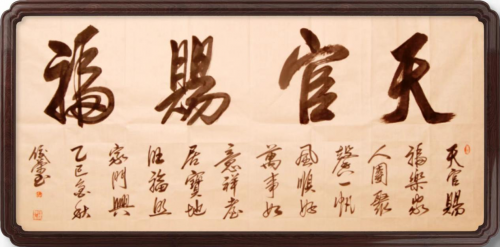 天官賜福
天官賜
福樂家
人團聚
馨一帆
風順好
萬事如
意祥宅
居寶地
旺福照
家門興
乙巳金秋